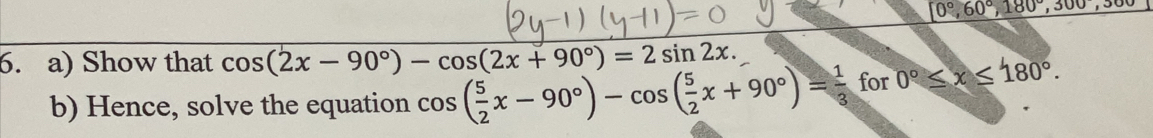 (2y-1) (y-1)=0 y
[0°, 60°, 180°, 300°, 360°]
6. a) Show that cos(2x − 90°) − cos(2x + 90°) = 2 sin 2x.
b) Hence, solve the equation cos (5/2 x − 90°) − cos (5/2 x + 90°) = 1/3 for 0° ≤ x ≤ 180°.